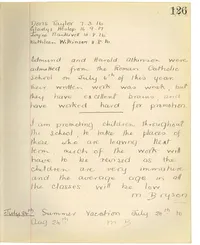 126
Doris Taylor 7.3.16
Gladys
Joyce
Kathleen Wilkinson
Edmund and Harold Atkinson were
admitted from the Roman Catholic
School on July 6th of this year
their written work was weak, but
they have excellent brains and
have worked hard for promotion.
I am promoting children throughout
the school to take the places of
those who are leaving. Next
term much of the work will
have to be revised as the
children are very immature
and the average age in all
the classes will be low.
July 24th Summer Vacation July 24th to
Aug 24th